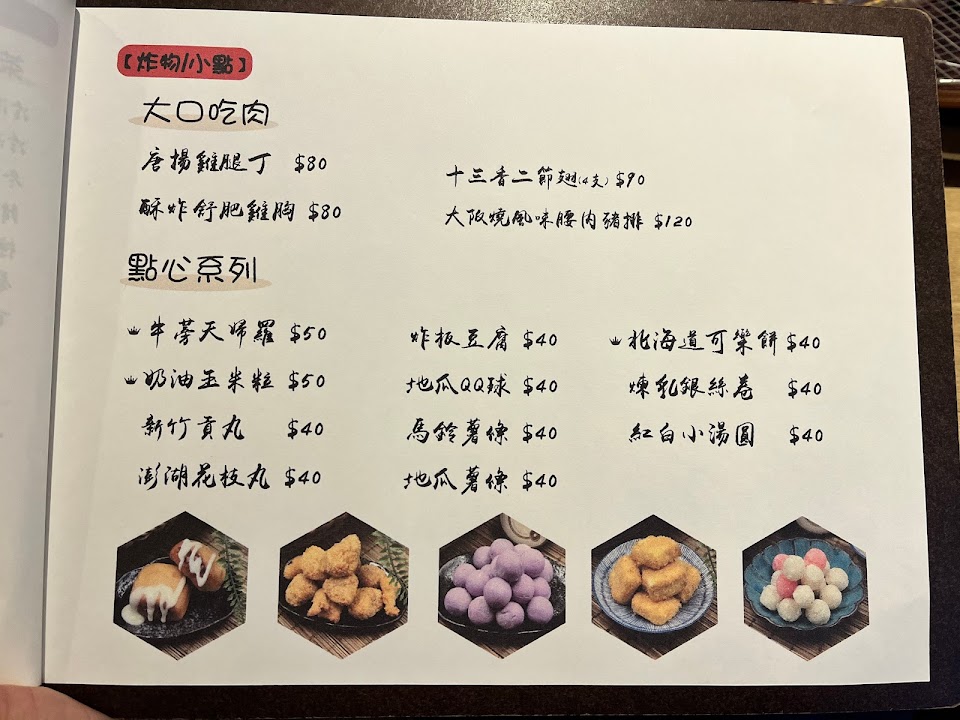 【炸物/小點】
大口吃肉
唐揚雞腿丁 $80
酥炸舒肥雞胸 $80
十三香二節翅(4支) $90
大阪燒風味腰內豬排 $120
點心系列
牛蒡天婦羅 $50
奶油玉米粒 $50
新竹貢丸 $40
澎湖花枝丸 $40
炸板豆腐 $40
地瓜QQ球 $40
馬鈴薯條 $40
地瓜薯條 $40
北海道可樂餅 $40
煉乳銀絲卷 $40
紅白小湯圓 $40